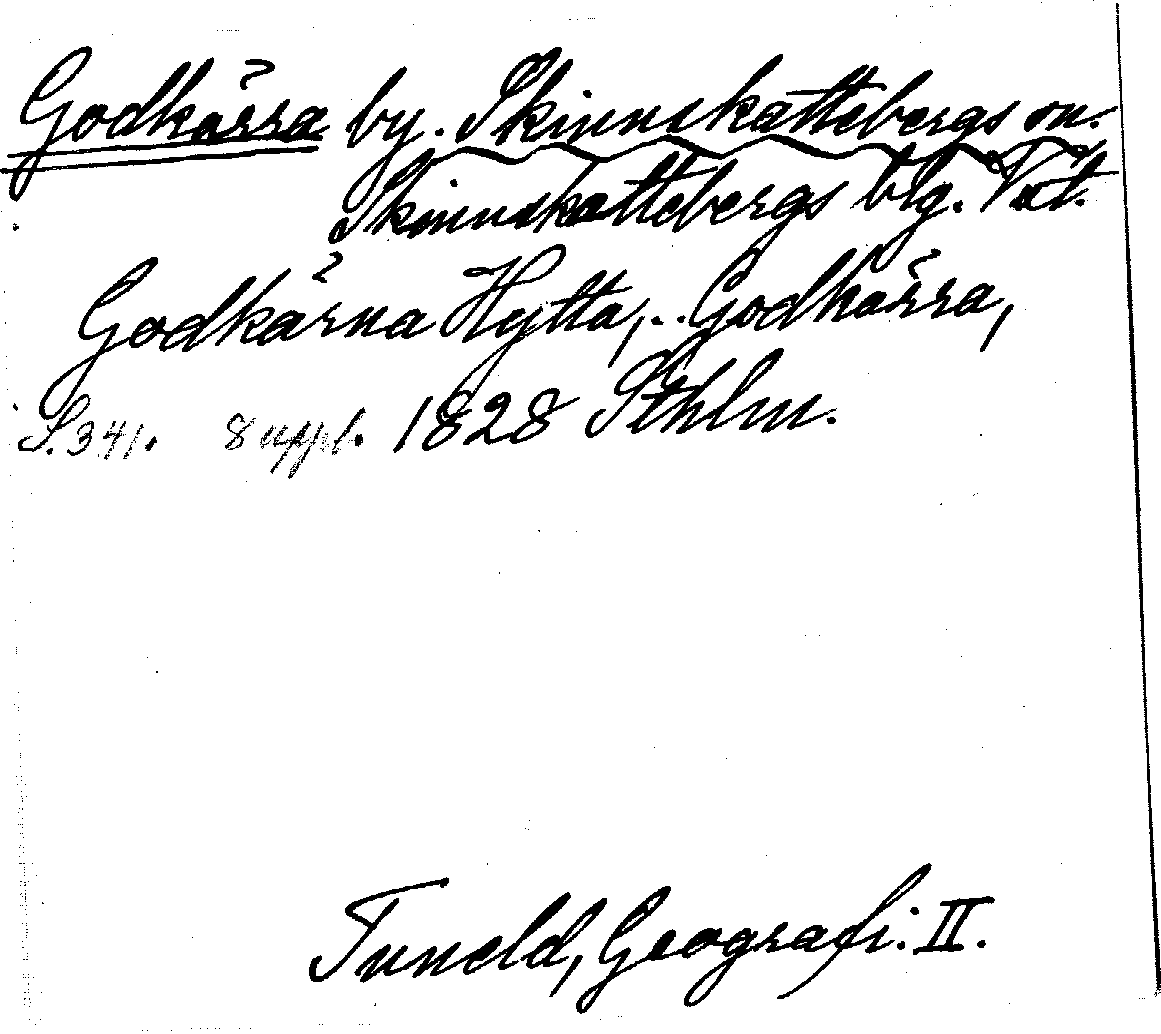 Godkärra by. Skinnskattebergs sn.
Skinnskattebergs blg. Vstl.
Godkärna Hytta,.. Godkärra,
S. 341. 8 uppl. 1828 Sthlm.
Tuneld, Geografi. II.